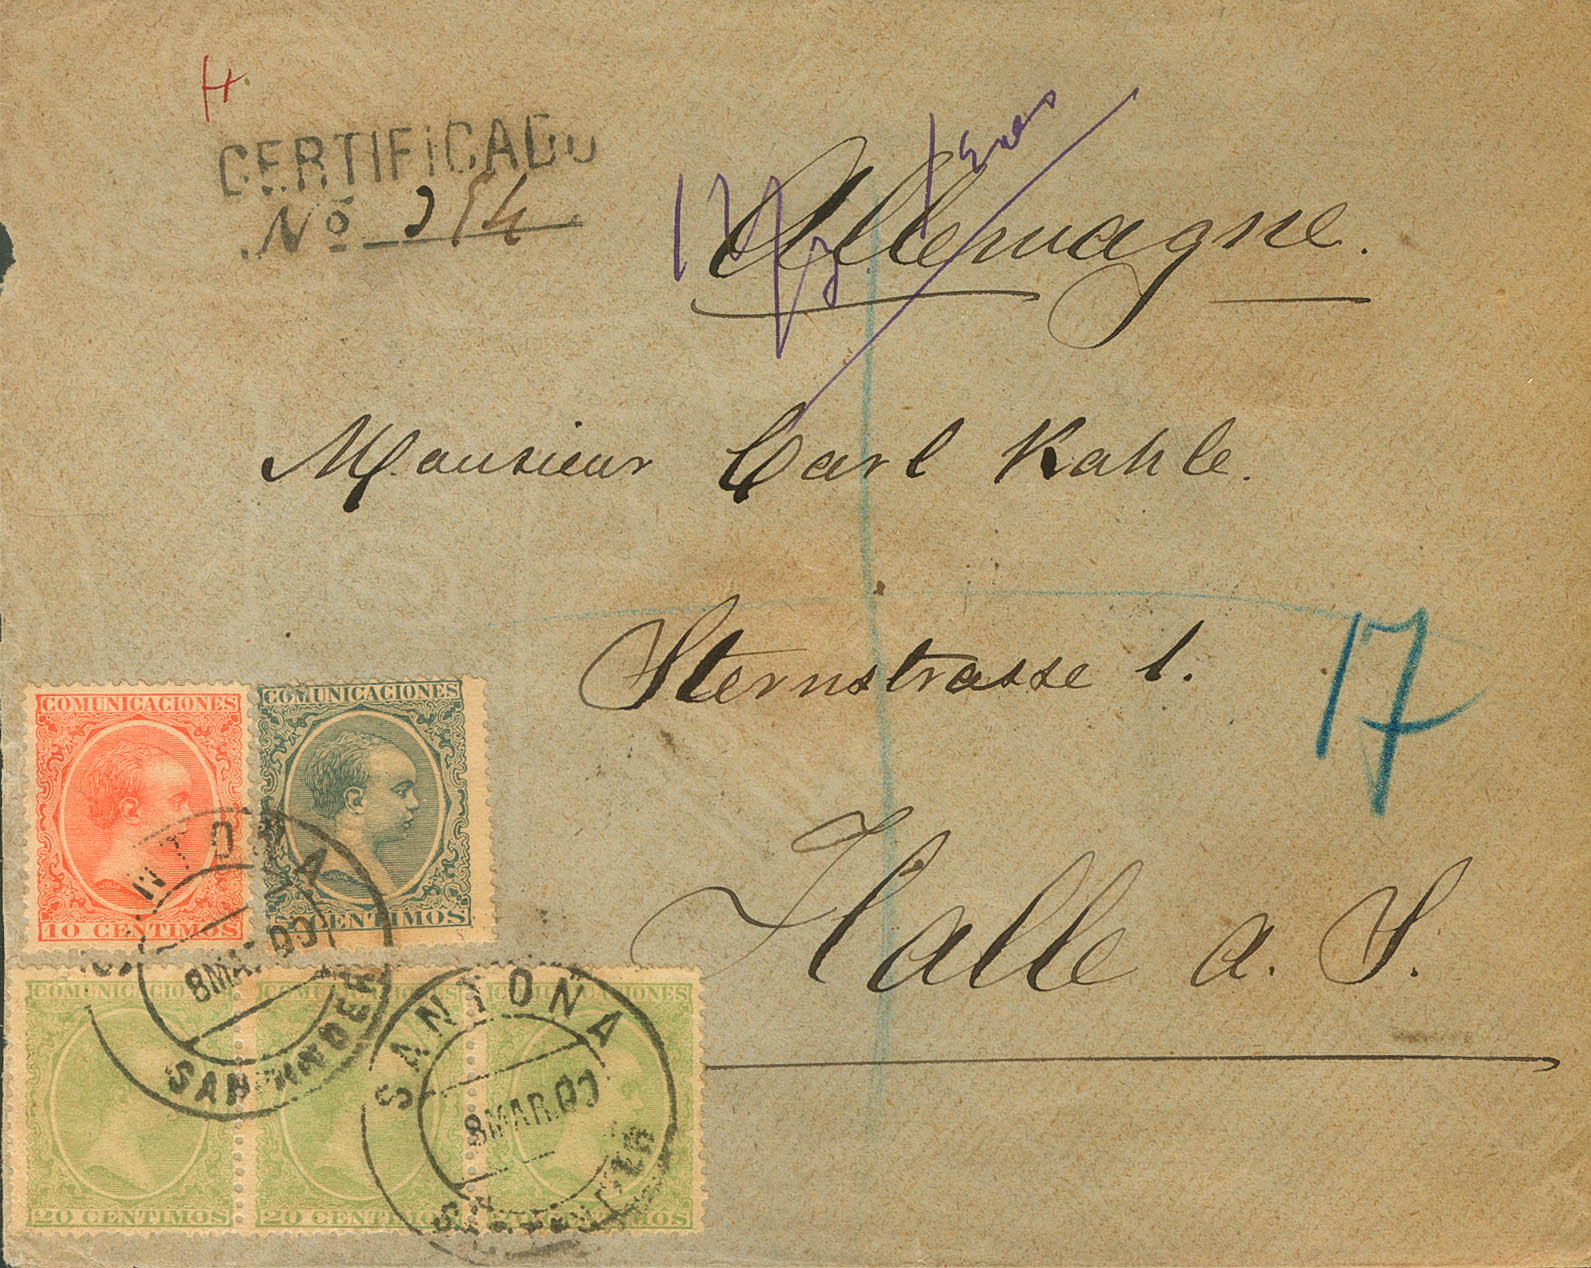 H
CERTIFICADO
Nº 254
Allemagne.
Monsieur Carl Kahle.
Sternstrasse 1.
17
Halle a. S.
COMUNICACIONES
10 CENTIMOS
COMUNICACIONES
5 CENTIMOS
SANTOÑA
8 MAR. 00
SANTANDER
COMUNICACIONES
20 CENTIMOS
COMUNICACIONES
20 CENTIMOS
COMUNICACIONES
20 CENTIMOS
SANTOÑA
8 MAR. 00
SANTANDER